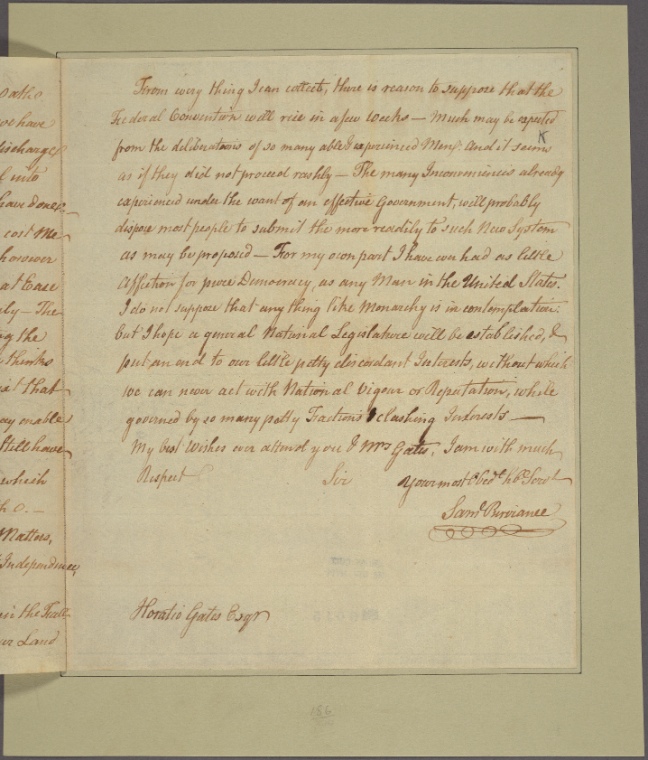 oatho
we have
discharge
into
have done
cost Me
however
at Ease
The
ing the
thinks
that
may enable
Still have
which
h o. —
Matters,
Independence,
in the Fall
our Land
From every thing I can collect, there is reason to suppose that the
Federal Convention will rise in a few weeks — Much may be expected
from the deliberations of so many able & experienced Men, And it seems
as if they did not proceed rashly — The many Inconveniencies already
experienced under the want of an effective Government, will probably
dispose most people to submit the more readily to such New System
as may be proposed — For my own part I have ever had as little
Affection for pure Democracy, as any Man in the United States.
I do not suppose that any thing like Monarchy is in contemplation.
but I hope a general National Legislature will be established, &
put an end to our little petty discordant Interests, without which
we can never act with National Vigour or Reputation, while
governed by so many petty Factions & clashing Interests —
My best Wishes ever attend you & Mrs Gates. I am with much
Respect Sir Your most Obedt hble Servt
Saml Purviance
Horatio Gates Esqr
186